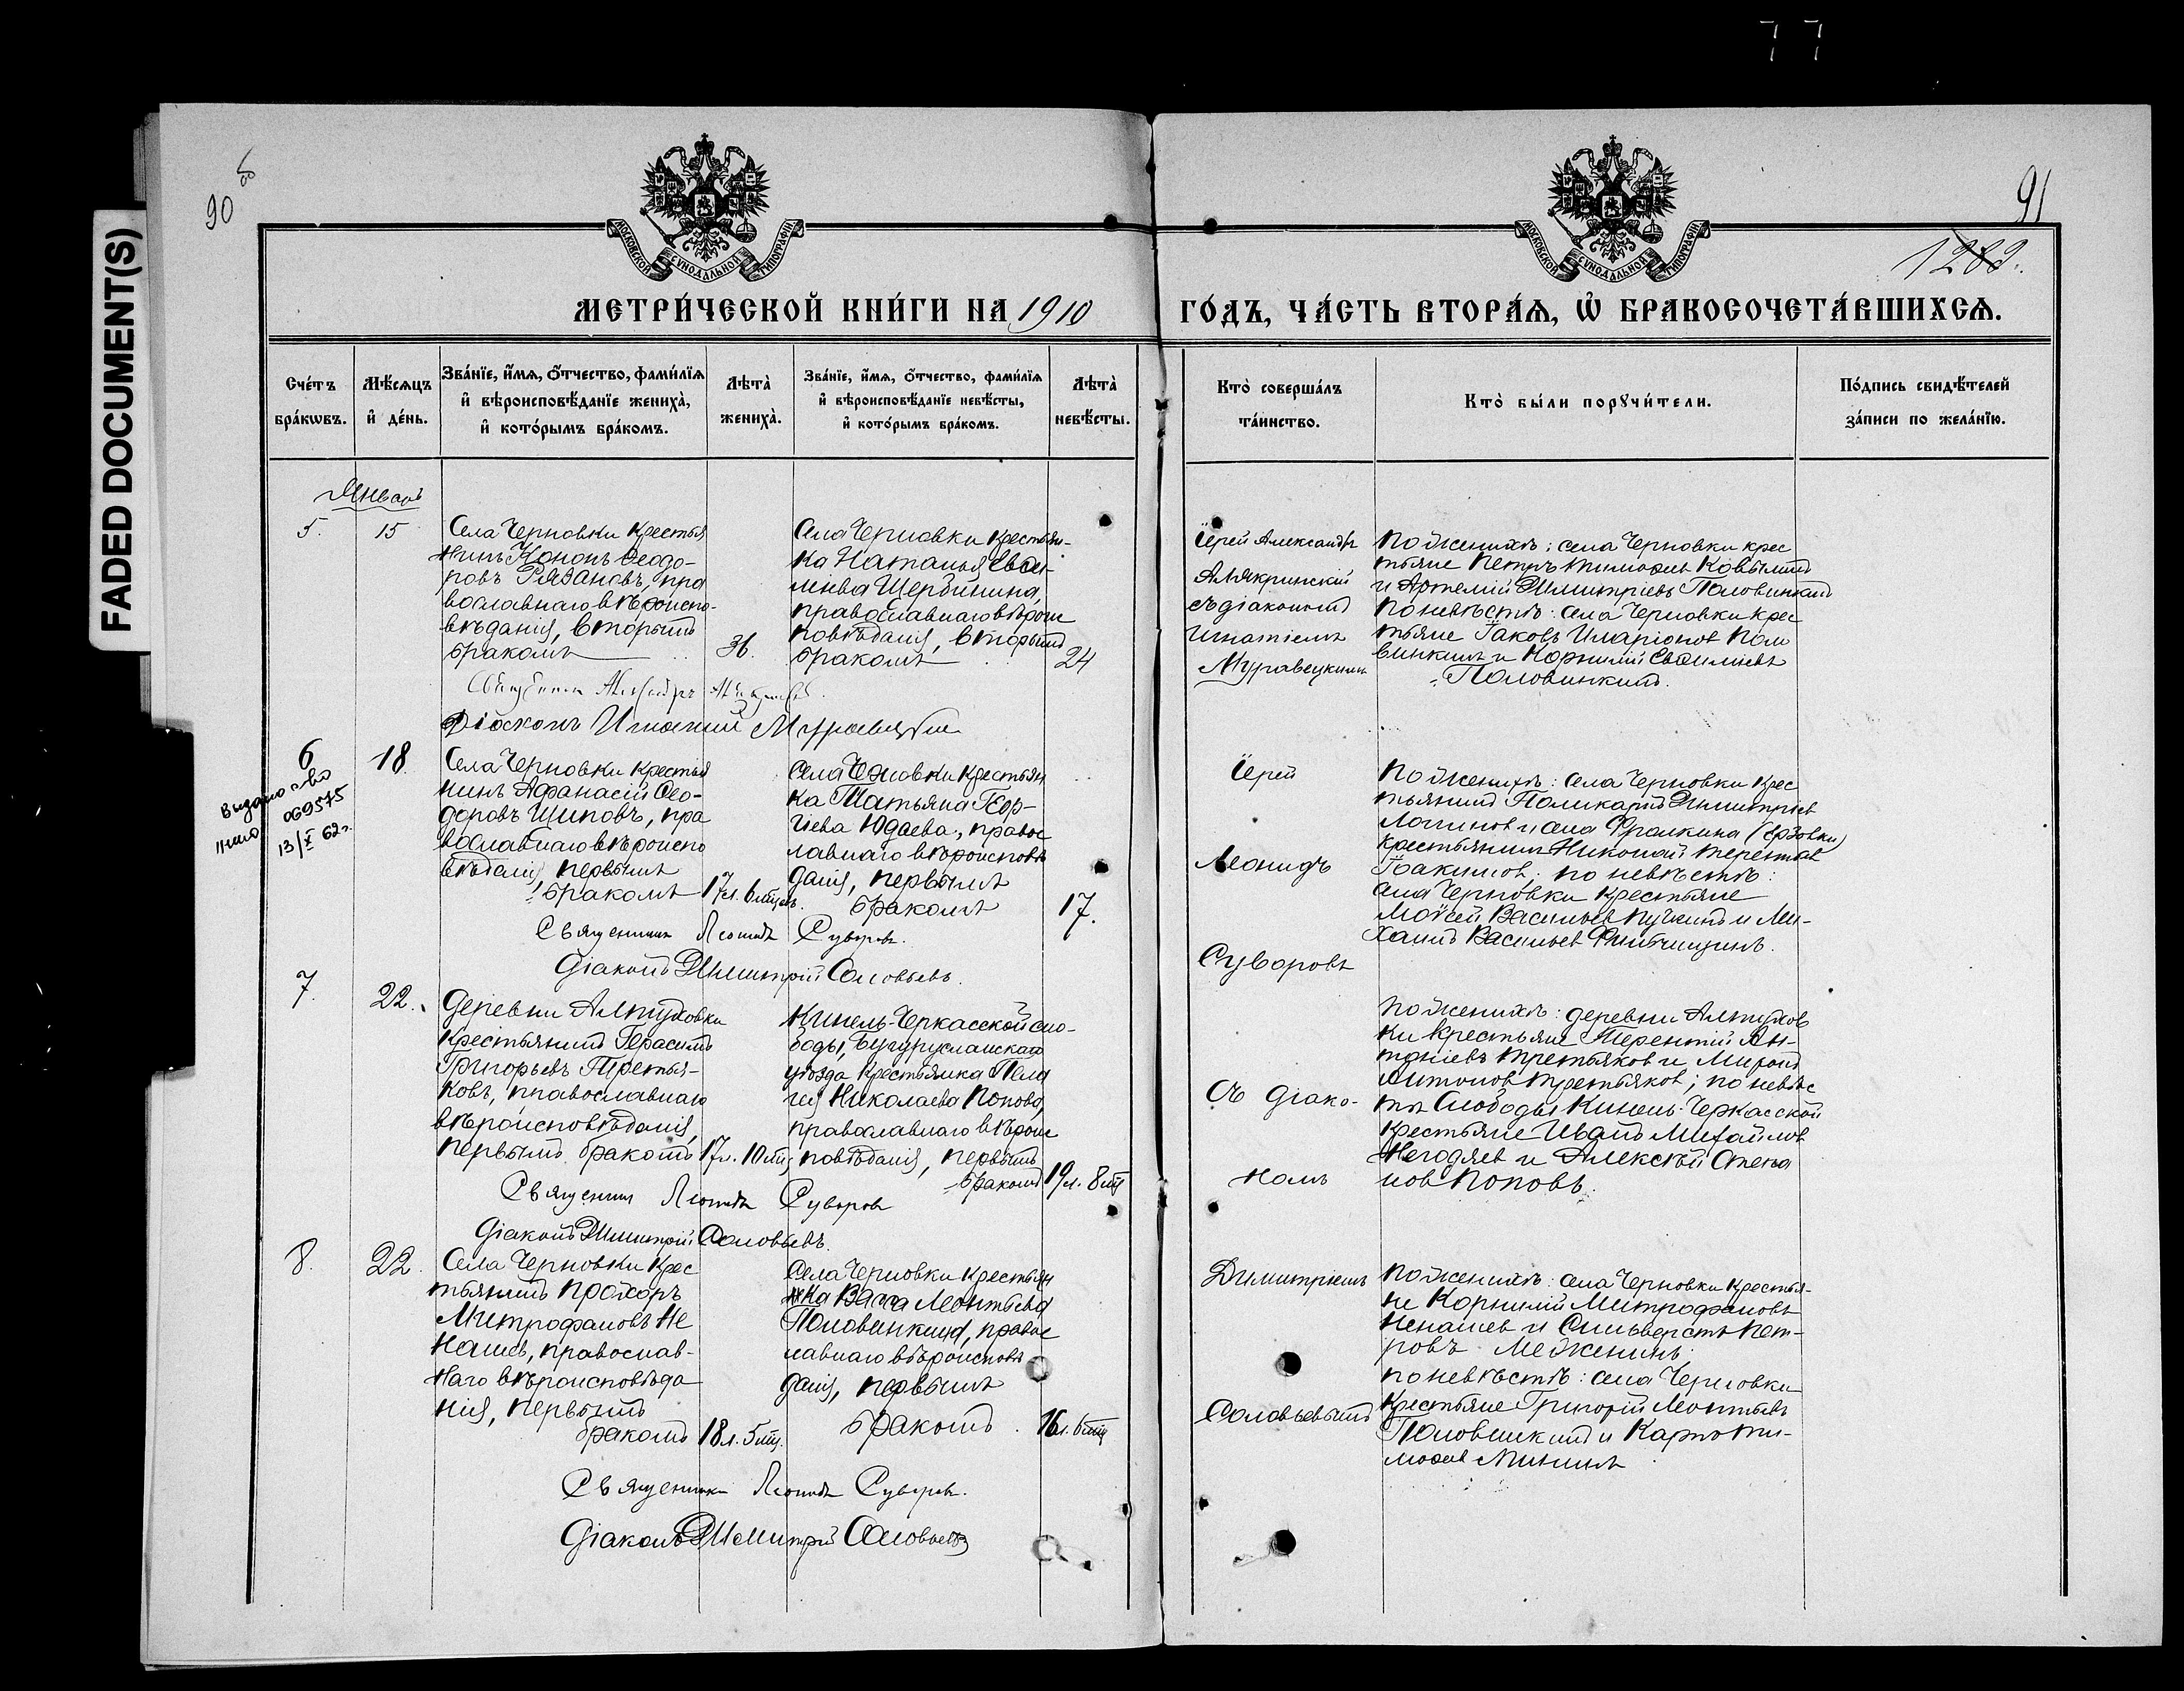 77
FADED DOCUMENT(S)
90 об
91
1282.
МОСКОВСКОЙ СѴНОДАЛЬНОЙ ТИПОГРАФІИ
МОСКОВСКОЙ СѴНОДАЛЬНОЙ ТИПОГРАФІИ
МЕТРИ́ЧЕСКОЙ КНИ́ГИ НА 1910 ГО́ДЪ, ЧА́СТЬ ВТОРА́Ѧ, Ѡ҆ БРАКОСОЧЕТА́ВШИХСѦ.
Сче́тъ бра́кѡвъ.
Мѣ́сѧцъ и҆ де́нь.
Зва́нїе, и҆́мѧ, ѻ҆́тчество, фами́лїѧ и҆ вѣроисповѣ́данїе жениха̀, и҆ кото́рымъ бра́комъ.
Лѣта̀ жениха̀.
Зва́нїе, и҆́мѧ, ѻ҆́тчество, фами́лїѧ и҆ вѣроисповѣ́данїе невѣ́сты, и҆ кото́рымъ бра́комъ.
Лѣта̀ невѣ́сты.
Кто̀ соверша́лъ та́инство.
Кто̀ бы́ли порꙋчи́тели.
По́дпись свидѣ́телей за́писи по жела́нїю.
Январь
5. 15
Села Черновки крестья
нинъ Кононъ Ѳеодо-
ровъ Рязановъ, пра
вославнаго вѣроиспо-
вѣданія, вторымъ
бракомъ
36.
Села Черновки крестьян-
ка Наталья Евѳи-
міева Щербинина,
православнаго вѣроис
повѣданія, вторымъ
бракомъ
24
Іерей Александръ
Алякринскій
съ діакономъ
Игнатіемъ
Муравецкимъ
По женихѣ: села Черновки крес
тьяне Петръ Тимоѳеевъ
и Артемій Димитріевъ Половинкинъ
по невѣстѣ: села Черновки крес
тьяне Іаковъ Иларіоновъ Поло
винкинъ и Корнилій Евѳиміевъ
Половинкинъ.
Священникъ Александръ Алякринскій
Діаконъ Игнатій Муравецкій
6 18
Выдано св-во
069575
13/X 62 г.
Села Черновки крестья
нинъ Аѳанасій Ѳео-
доровъ Щиповъ, пра
вославнаго вѣроиспо
вѣданія, первымъ
бракомъ
17 л. 6 мцев.
Села Черновки крестьян
ка Татьяна Геор-
гіева Юдаева, правос
лавнаго вѣроисповѣ
данія, первымъ
бракомъ
17.
Іерей
Леонидъ
Суворовъ
По женихѣ: села Черновки крес
тьянинъ Поликарпъ Димитріев
Логиновъ и села Фролкина (Ерзовки)
крестьянинъ Николай Терентьев
Іоакимовъ; по невѣстѣ:
села Черновки крестьяне
Моѵсей Васильев Пучкинъ и Ми-
хаилъ Васильев
Священникъ Леонидъ Суворовъ.
Діаконъ Димитрій Соловьевъ.
7. 22.
Деревни Алтуховки
крестьянинъ Герасимъ
Григорьевъ Третья-
ковъ, православнаго
вѣроисповѣданія,
первымъ бракомъ
17 л. 10 мц
Кинель-Черкасской сло-
боды, Бугурусланскаго
уѣзда крестьянка Пела
гея Николаева Попова,
православнаго вѣроис
повѣданія, первымъ
бракомъ
19 л. 8 мц
Съ діако-
номъ
По женихѣ: деревни Алтухов
ки крестьяне Терентій Ан-
тоніевъ Третьяков и Миронъ
Антонов Третьяков; по невѣс
тѣ слободы Кинель-Черкасской
крестьяне Иванъ Михайлов
Негодяев и Алексѣй Степа
нов Поповъ.
Священник Леонидъ Суворовъ
Діаконъ Димитрій Соловьевъ.
8. 22.
Села Черновки крес
тьянинъ Прохоръ
Митрофановъ Не
нашев, православ-
наго вѣроисповѣда
нія, первымъ
бракомъ
18 л. 5 мц.
Села Черновки крестьян
ка Васса Леонтьева
Половинкина, правос
лавнаго вѣроисповѣ
данія, первымъ
бракомъ
16 л. 6 мц
Димитріемъ
Соловьевымъ
По женихѣ: села Черновки крестья-
не Корнилій Митрофановъ
Ненашев и Сильверстъ Пет-
ровъ
по невѣстѣ: села Черновки
крестьяне Григорій Леонтьевъ
Половинкинъ и Карпъ Ти-
моѳеев
Священникъ Леонидъ Суворовъ.
Діаконъ Димитрій Соловьевъ